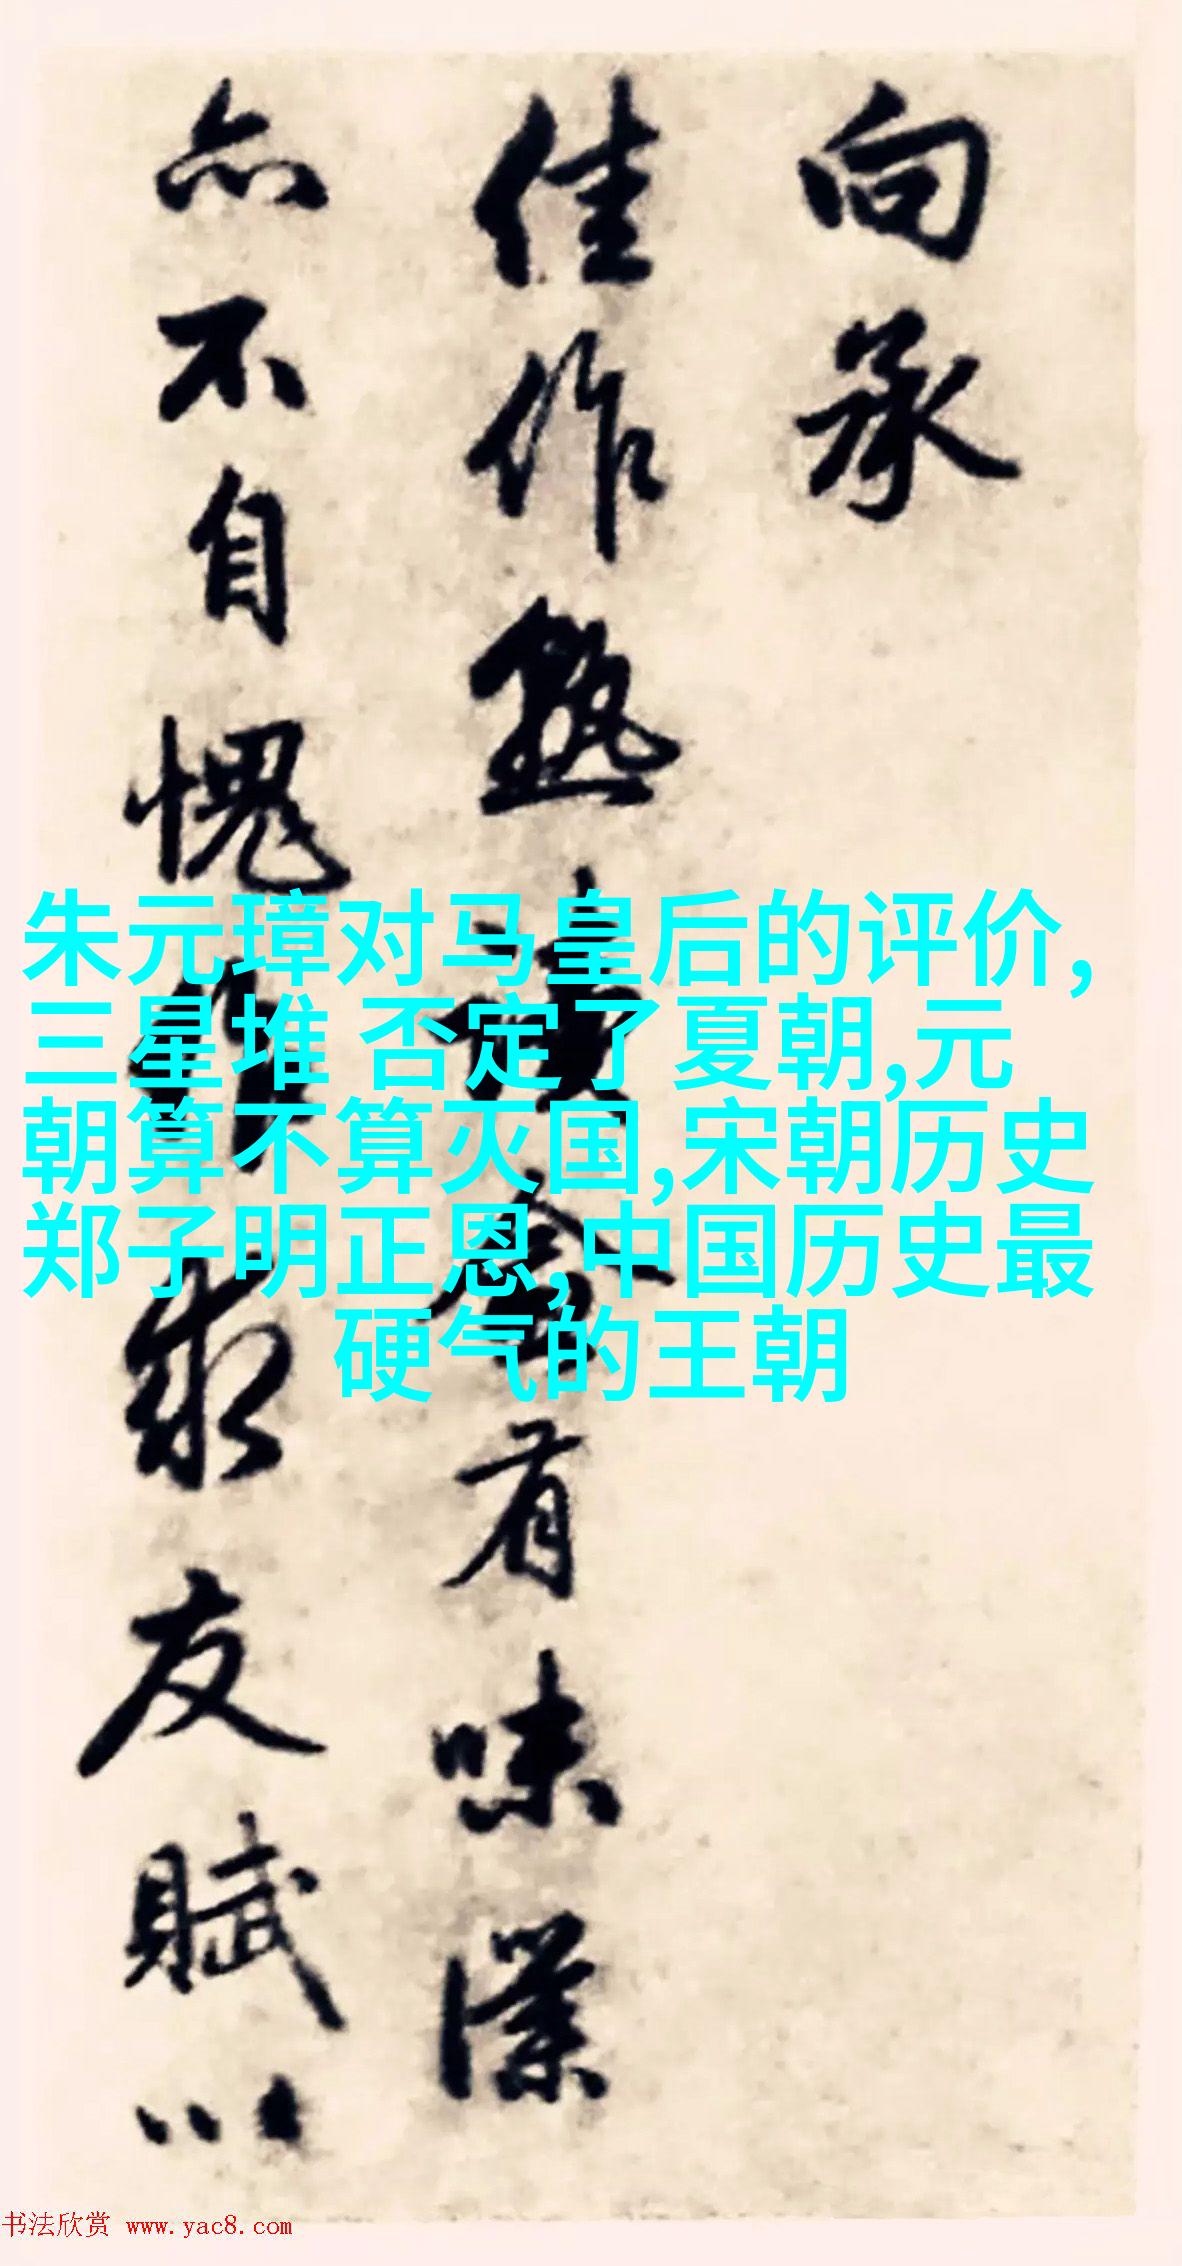 向承
佳作熟有味僕
亦不自愧作求友賦以
朱元璋对马皇后的评价,
三星堆 否定了夏朝,元
朝算不算灭国,宋朝历史
郑子明正恩,中国历史最
硬气的王朝
书法欣赏 www.yac8.com